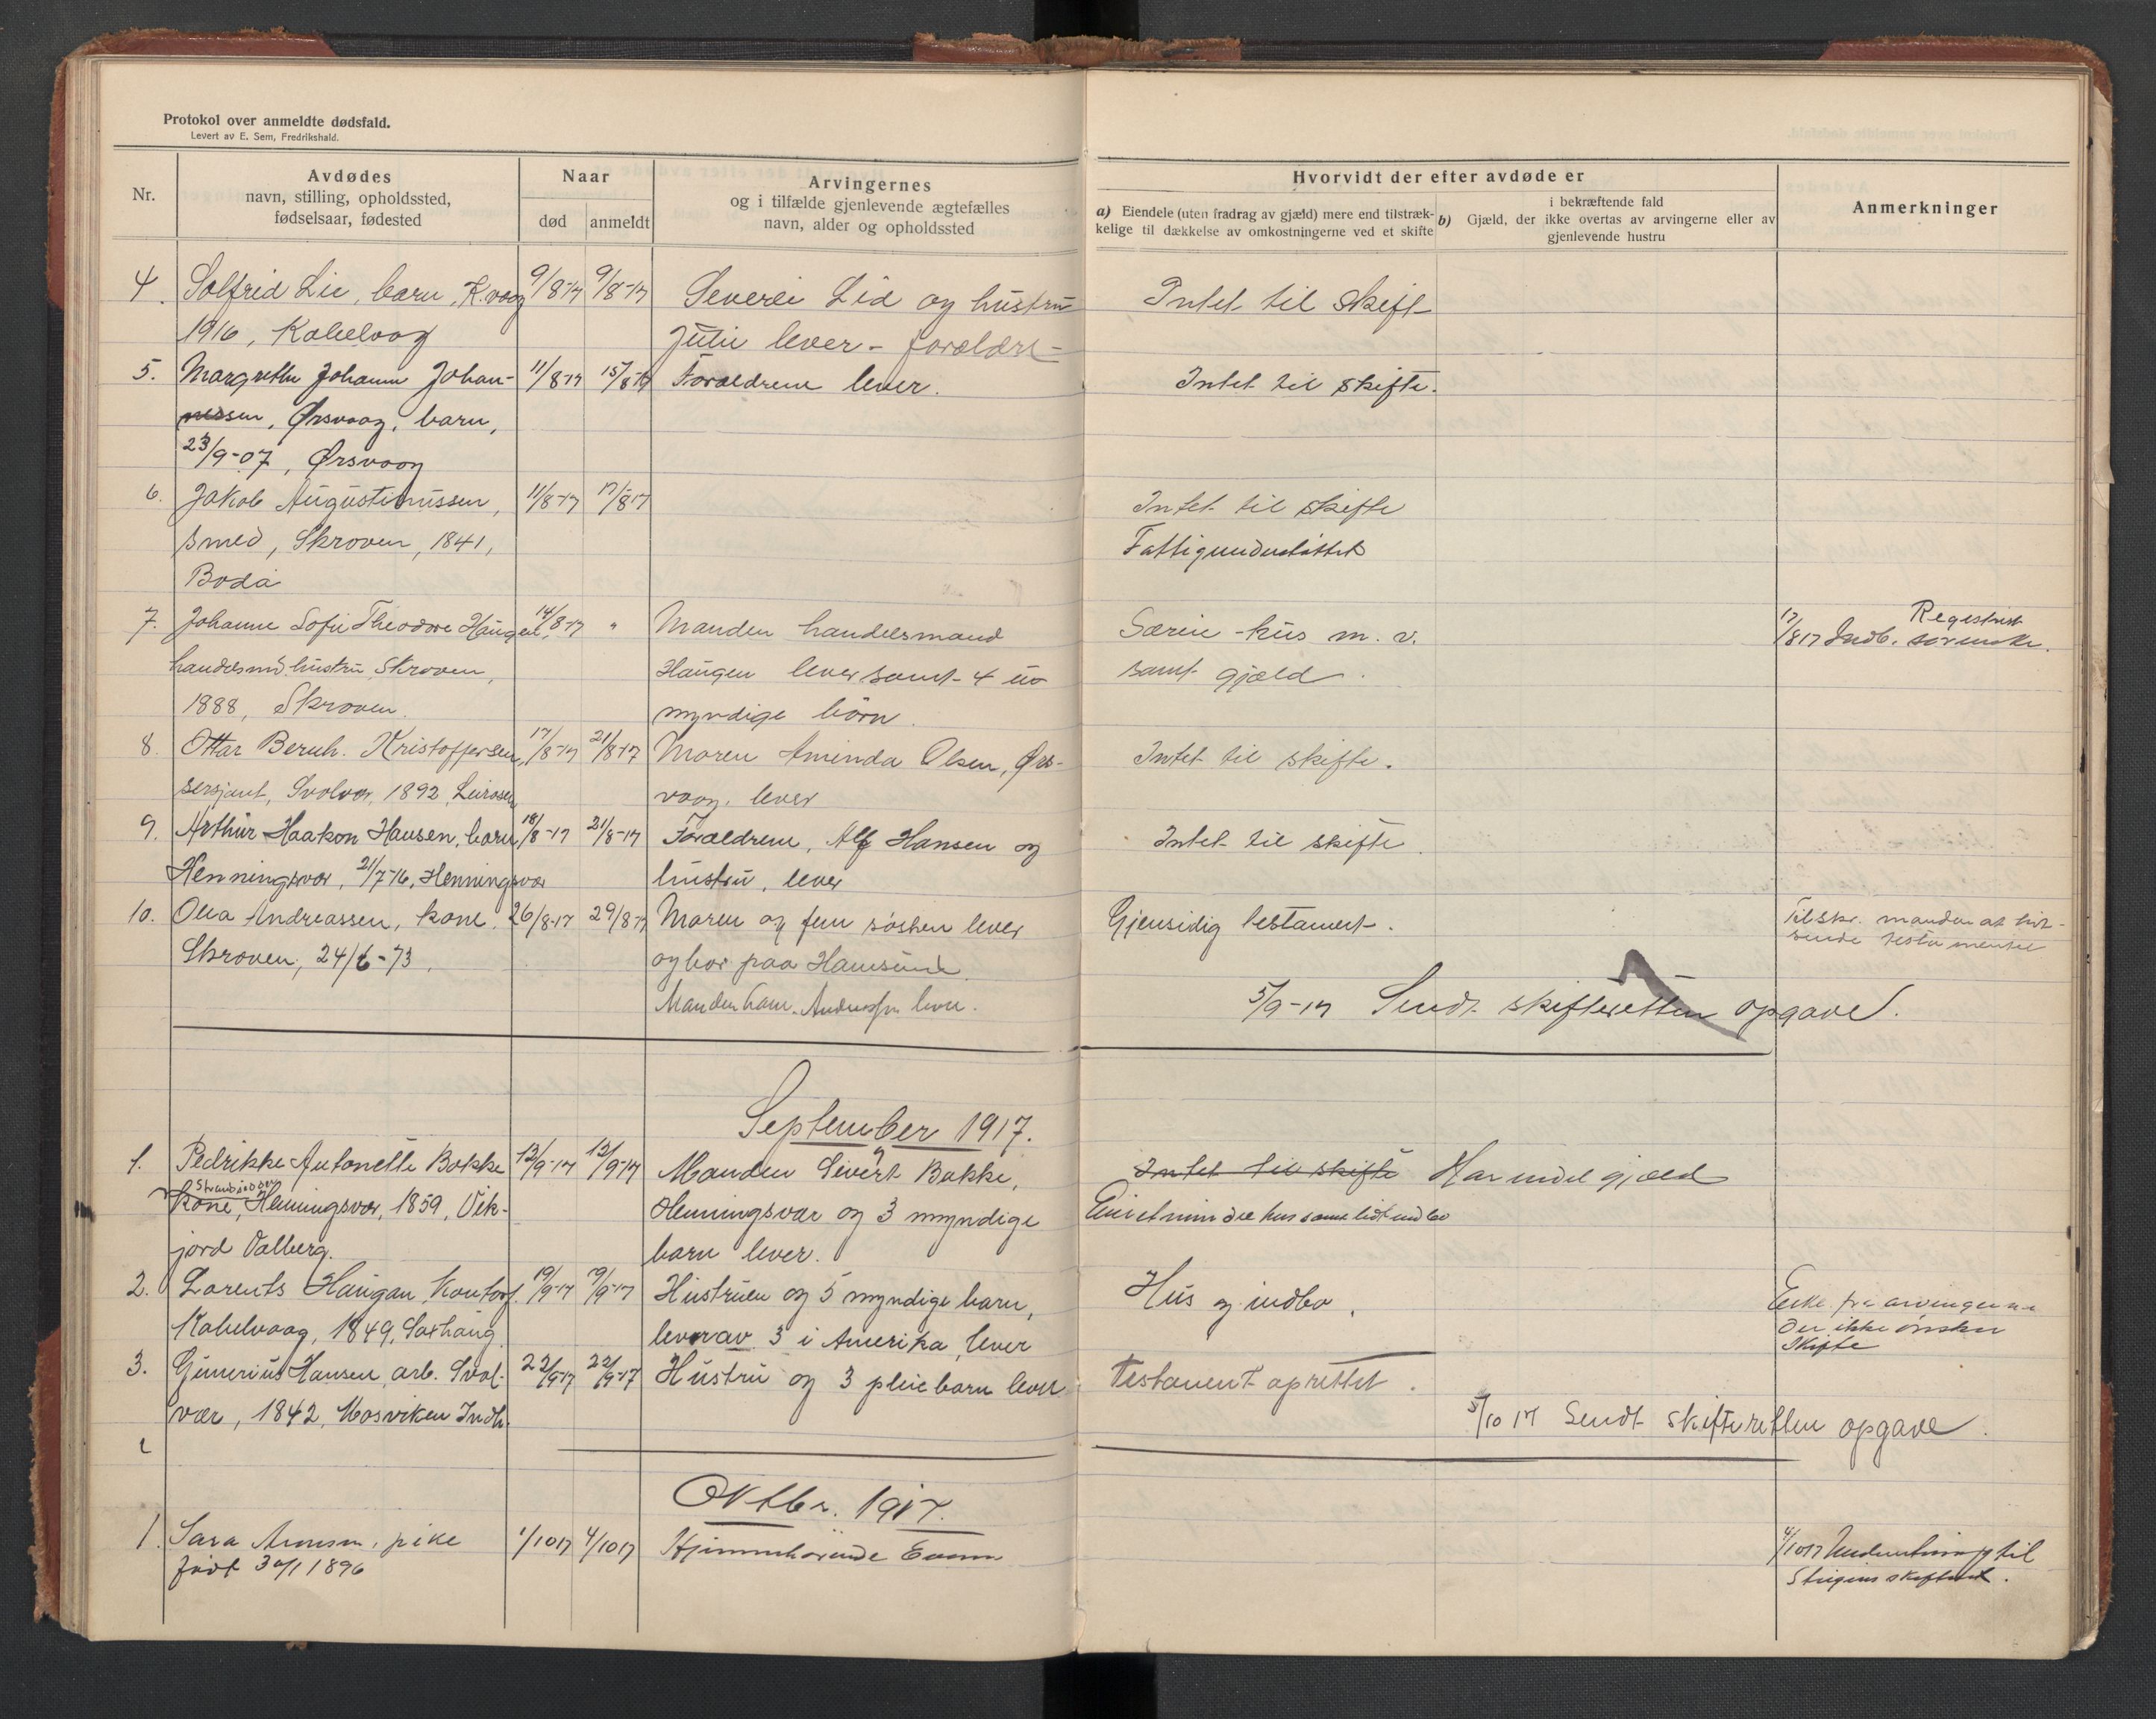 Protokol over anmeldte dødsfald.
Levert av E. Sem, Fredrikshald.
Nr.
Avdødes
navn, stilling, opholdssted,
fødselsaar, fødested
Naar
død
anmeldt
Arvingernes
og i tilfælde gjenlevende ægtefælles
navn, alder og opholdssted
Hvorvidt der efter avdøde er
a) Eiendele (uten fradrag av gjæld) mere end tilstræk-
kelige til dækkelse av omkostningerne ved et skifte
i bekræftende fald
b) Gjæld, der ikke overtas av arvingerne eller av
gjenlevende hustru
Anmerkninger
4. Solfrid Lie, barn, K.vaag 9/8-17 9/8-17 Severin Lid og hustru Intet til skift
1916, Kabelvaag Julie lever - forældre
5. Margrethe Johanne Johan- 11/8-17 15/8-17 Forældrene lever. Intet til skifte.
nessen, Ørsvaag, barn,
23/9-07, Ørsvaag
6. Jakob Augustinussen, 11/8-17 17/8-17 Intet til skifte
smed, Skroven, 1841, Fattigunderstøttet
Bodø
7. Johanne Sofie Theodore Haugen, 14/8-17 " Manden handelsmand Særeie - hus m. v. 17/8 17 Indb. Registrert
handelsmd. hustru, Skroven, Haugen lever samt 4 u- samt gjæld.
1888, Skroven. myndige börn.
8. Ottar Bernh. Kristoffersen, 17/8-17 21/8-17 Maren Aminda Olsen, Ørs- Intet til skifte.
sersjant, Svolvær, 1892, Leirosen vaag, lever
9. Arthur Haakon Hansen, barn 18/8-17 21/8-17 Forældrene, Alf Hansen og Intet til skifte.
Henningsvær, 21/7-16, Henningsvær hustru, lever
10. Olea Andreassen, kone, 26/8-17 29/8-17 Moren og fem søsken lever Gjensidig testament. Tilskr. manden at ind-
Skroven, 24/6-73, og bor paa Hamsund. sende testamentet
Manden Andreassen lever.
5/9-17 Sendt skifteretten opgave.
September 1917.
1. Pedrikke Antonette Bakke 13/9-17 13/9-17 Manden Sivert Bakke, Intet til skifte Har endel gjæld
kone, Henningsvær, 1859, Vik- Henningsvær og 3 myndige Eiet mindre hus samt lidt indbo
jord Valberg. barn lever.
2. Lorents Haugan, Kontorf. 19/9-17 19/9-17 Hustruen og 5 myndige barn, Hus og indbo. Erkl. fra arvingerne
Kabelvaag, 1849, Saxhaug. hvorav 3 i Amerika, lever der ikke ønsker
Skifte
3. Gunerius Hansen, arb. Svol- 22/9-17 22/9-17 Hustru og 3 pleiebarn lever Testament oprettet.
vær, 1842, Mosviken Indh.
5/10 17 Sendt skifteretten opgave.
Oktbr. 1917.
1. Sara , pike 1/10 17 4/10 17 Hjemmehørende 4/10 17 Underretning til
født 30/1 1896 Steigens skifteret.